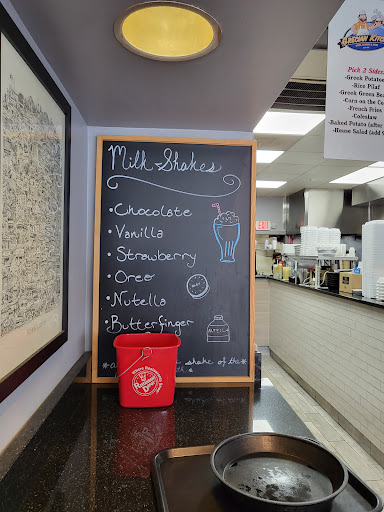 Milk-Shakes
• Chocolate
• Vanilla
• Strawberry
• Oreo
• Nutella
• Butterfinger
shake of the
GRECIAN KITCHEN
Pick 2 Sides
-Greek Potatoes
-Rice Pilaf
-Greek Green Bea
-Corn on the C
-French Fries
-Coleslaw
-Baked Potato (after
-House Salad (add
EXIT